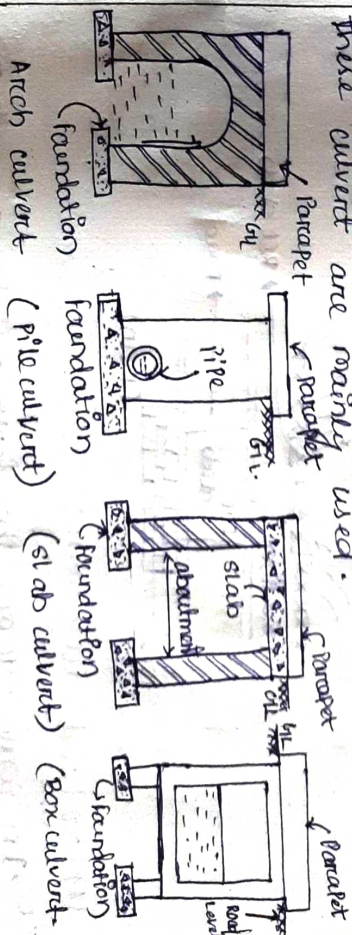 These culvert are mainly used.
Parapet
GL
(foundation
Arch culvert
Parapet
GL.
Pipe
foundation
(Pile culvert)
Parapet
GL
slab
abutment
(foundation
(slab culvert)
Parapet
GL
Road
Level
(foundation
(Box culvert